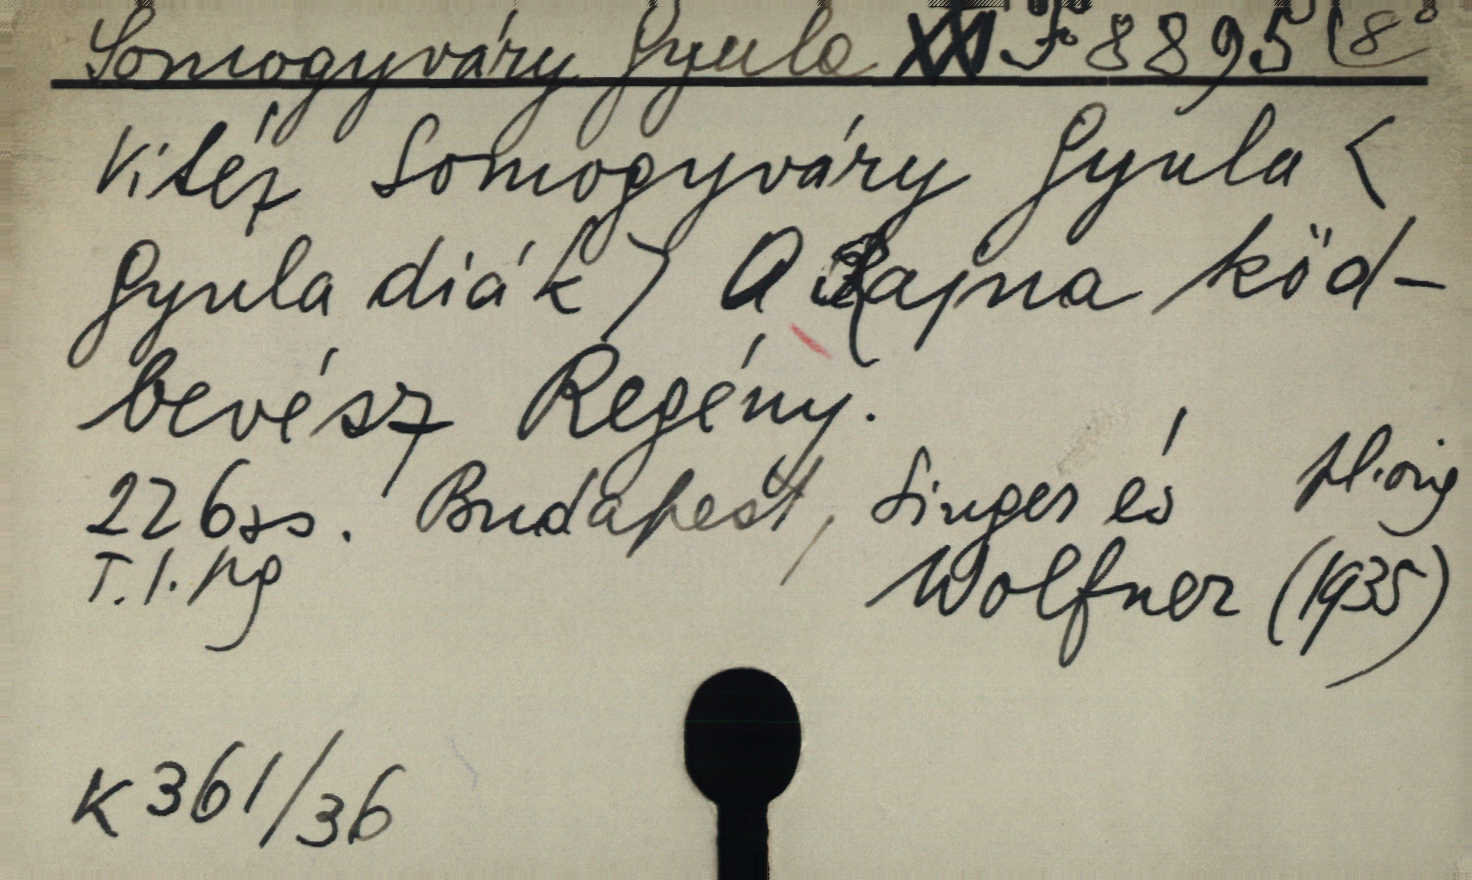 Somogyváry Gyula XXI F 8895 (8°
Vitéz Somogyváry Gyula <
Gyula diák> A Rajna köd-
bevész Regény.
226ss. Budapest, Singer és
Wolfner (1935)
T. 1.
K 361/36